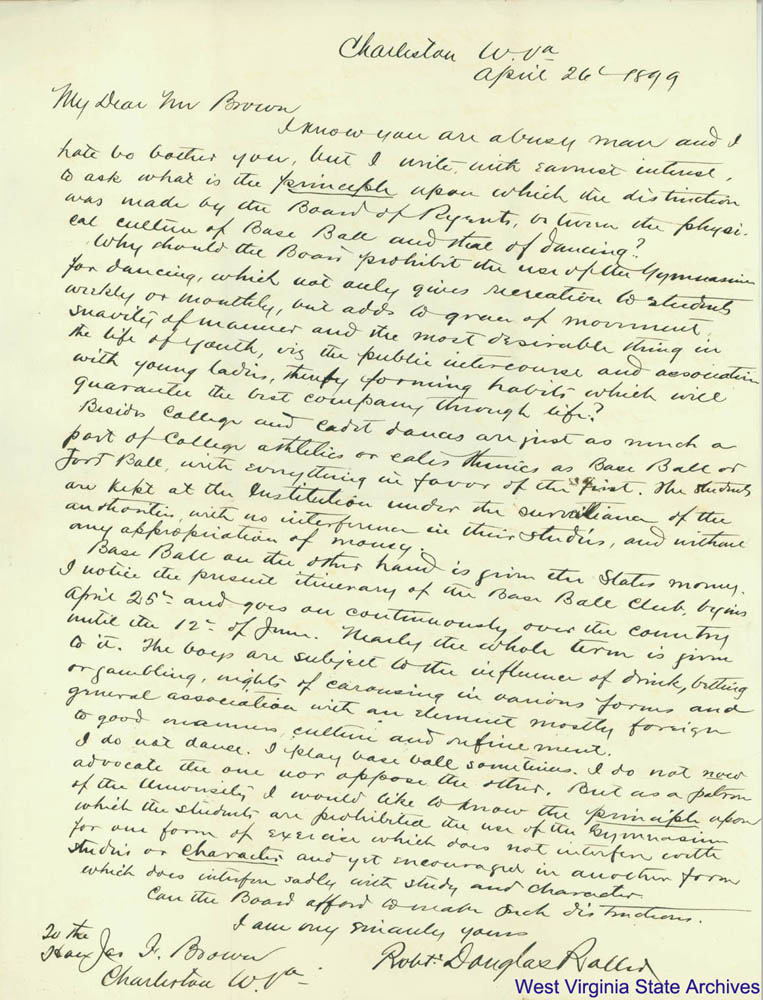 Charleston W. Va
April 26 - 1899
My Dear Mr Brown
I know you are a busy man and I
hate to bother you, but I write, with earnest interest,
to ask what is the principle upon which the distinction
was made by the Board of Regents, between the physi-
cal culture of Base Ball and that of dancing?
Why should the Board prohibit the use of the Gymnasium
for dancing, which not only gives recreation to students
weekly or monthly, but adds to grace of movement,
suavity of manner and the most desirable thing in
the life of youth, viz the public intercourse and association
with young ladies, thereby forming habits which will
guarantee the best company through life?
Besides College and cadet dances are just as much a
part of College athletics or calisthenics as Base Ball or
Foot Ball, with everything in favor of the first. The students
are kept at the Institution under the surveillance of the
authorities, with no interference in their studies, and without
any appropriation of money.
Base Ball on the other hand is given the States money.
I notice the present itinerary of the Base Ball Club, begins
April 25th and goes on continuously over the country
until the 12th of June. Nearly the whole term is given
to it. The boys are subject to the influence of drink, betting
or gambling, nights of carousing in various forms and
general association with an element mostly foreign
to good manners, culture and refinement.
I do not dance. I play base ball sometimes. I do not now
advocate the one nor oppose the other. But as a patron
of the University I would like to know the principle upon
which the students are prohibited the use of the Gymnasium
for one form of exercise which does not interfere with
studies or character and yet encouraged in another form
which does interfere sadly with study and character.
Can the Board afford to make such distinctions.
I am very sincerely yours
Robt. Douglas Roller
To the
Hon Jas. F. Brown
Charleston W. Va.
West Virginia State Archives